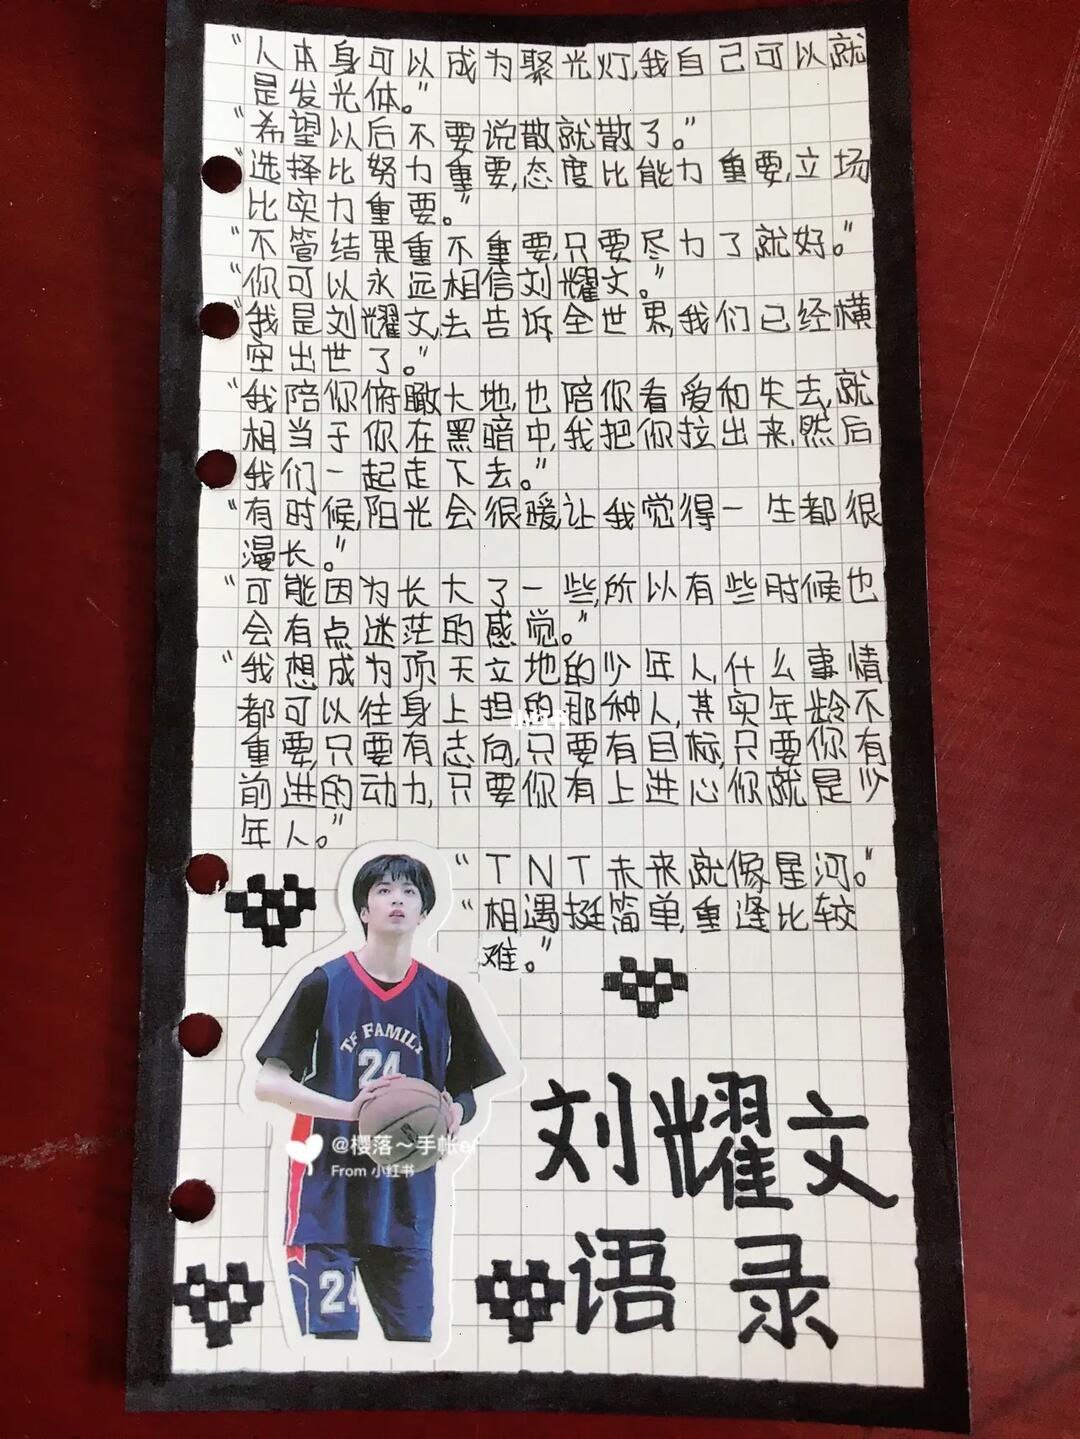 “人本身可以成为聚光灯,我自己可以就
是发光体。”
“希望以后不要说散就散了。”
“选择比努力重要,态度比能力重要,立场
比实力重要。”
“不管结果重不重要,只要尽力了就好。”
“你可以永远相信刘耀文。”
“我是刘耀文,去告诉全世界,我们已经横
空出世了。”
“我陪你俯瞰大地,也陪你看爱和失去,就
相当于你在黑暗中,我把你拉出来,然后
我们一起走下去。”
“有时候,阳光会很暖,让我觉得一生都很
漫长。”
“可能因为长大了一些,所以有些时候也
会有点迷茫的感觉。”
“我想成为顶天立地的少年人,什么事情
都可以往身上担的那种人,其实年龄不
重要,只要有志向,只要有目标,只要你有
前进的动力,只要你有上进心你就是少
年人。”
“TNT未来就像星河。”
“相遇挺简单,重逢比较
难。”
小红书
TF FAMILY
24
@樱落～手帐er
From 小红书
24
刘耀文
语录